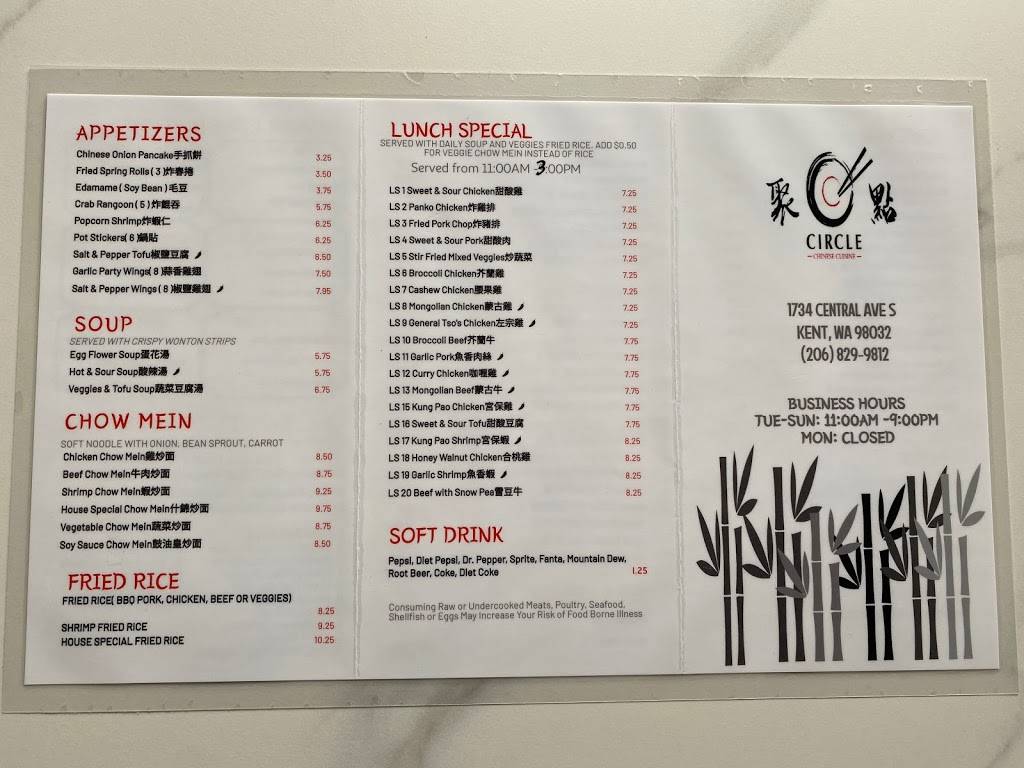 APPETIZERS
Chinese Onion Pancake手抓餅 3.25
Fried Spring Rolls ( 3 )炸春捲 3.50
Edamame ( Soy Bean ) 毛豆 3.75
Crab Rangoon ( 5 ) 炸餛吞 5.75
Popcorn Shrimp炸蝦仁 6.25
Pot Stickers( 6 )鍋貼 6.25
Salt & Pepper Tofu椒鹽豆腐 6.50
Garlic Party Wings( 8 )蒜香雞翅 7.50
Salt & Pepper Wings ( 8 )椒鹽雞翅 7.95
SOUP
SERVED WITH CRISPY WONTON STRIPS
Egg Flower Soup蛋花湯 5.75
Hot & Sour Soup酸辣湯 5.75
Veggies & Tofu Soup蔬菜豆腐湯 6.75
CHOW MEIN
SOFT NOODLE WITH ONION, BEAN SPROUT, CARROT
Chicken Chow Mein雞炒面 8.50
Beef Chow Mein牛肉炒面 8.75
Shrimp Chow Mein蝦炒面 9.25
House Special Chow Mein什錦炒面 9.75
Vegetable Chow Mein蔬菜炒面 8.75
Soy Sauce Chow Mein豉油皇炒面 8.50
FRIED RICE
FRIED RICE( BBQ PORK, CHICKEN, BEEF OR VEGGIES)
8.25
SHRIMP FRIED RICE 9.25
HOUSE SPECIAL FRIED RICE 10.25
LUNCH SPECIAL
SERVED WITH DAILY SOUP AND VEGGIES FRIED RICE. ADD $0.50
FOR VEGGIE CHOW MEIN INSTEAD OF RICE
Served from 11:00AM -3:00PM
LS 1 Sweet & Sour Chicken甜酸雞 7.25
LS 2 Panko Chicken炸雞排 7.25
LS 3 Fried Pork Chop炸豬排 7.25
LS 4 Sweet & Sour Pork甜酸肉 7.25
LS 5 Stir Fried Mixed Veggies炒蔬菜 7.25
LS 6 Broccoli Chicken芥蘭雞 7.25
LS 7 Cashew Chicken腰果雞 7.25
LS 8 Mongolian Chicken蒙古雞 7.25
LS 9 General Tso's Chicken左宗雞 7.25
LS 10 Broccoli Beef芥蘭牛 7.75
LS 11 Garlic Pork魚香肉絲 7.75
LS 12 Curry Chicken咖喱雞 7.75
LS 13 Mongolian Beef蒙古牛 7.75
LS 15 Kung Pao Chicken宮保雞 7.75
LS 16 Sweet & Sour Tofu甜酸豆腐 7.75
LS 17 Kung Pao Shrimp宮保蝦 8.25
LS 18 Honey Walnut Chicken合桃雞 8.25
LS 19 Garlic Shrimp魚香蝦 8.25
LS 20 Beef with Snow Pea雪豆牛 8.25
SOFT DRINK
Pepsi, Diet Pepsi, Dr. Pepper, Sprite, Fanta, Mountain Dew,
Root Beer, Coke, Diet Coke 1.25
Consuming Raw or Undercooked Meats, Poultry, Seafood,
Shellfish or Eggs May Increase Your Risk of Food Borne Illness
聚點
CIRCLE
CHINESE CUISINE
1734 CENTRAL AVE S
KENT, WA 98032
(206) 829-9812
BUSINESS HOURS
TUE-SUN: 11:00AM -9:00PM
MON: CLOSED